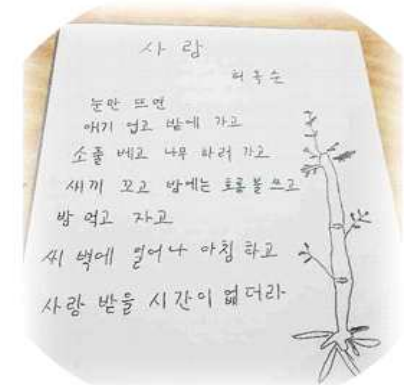 사랑
허옥순
눈만 뜨면
애기 업고 밭에 가고
소풀 베고 나무 하러 가고
새끼 꼬고 밤에는 호롱불 쓰고
밥 먹고 자고
새벽에 일어나 아침 하고
사랑 받을 시간이 없더라